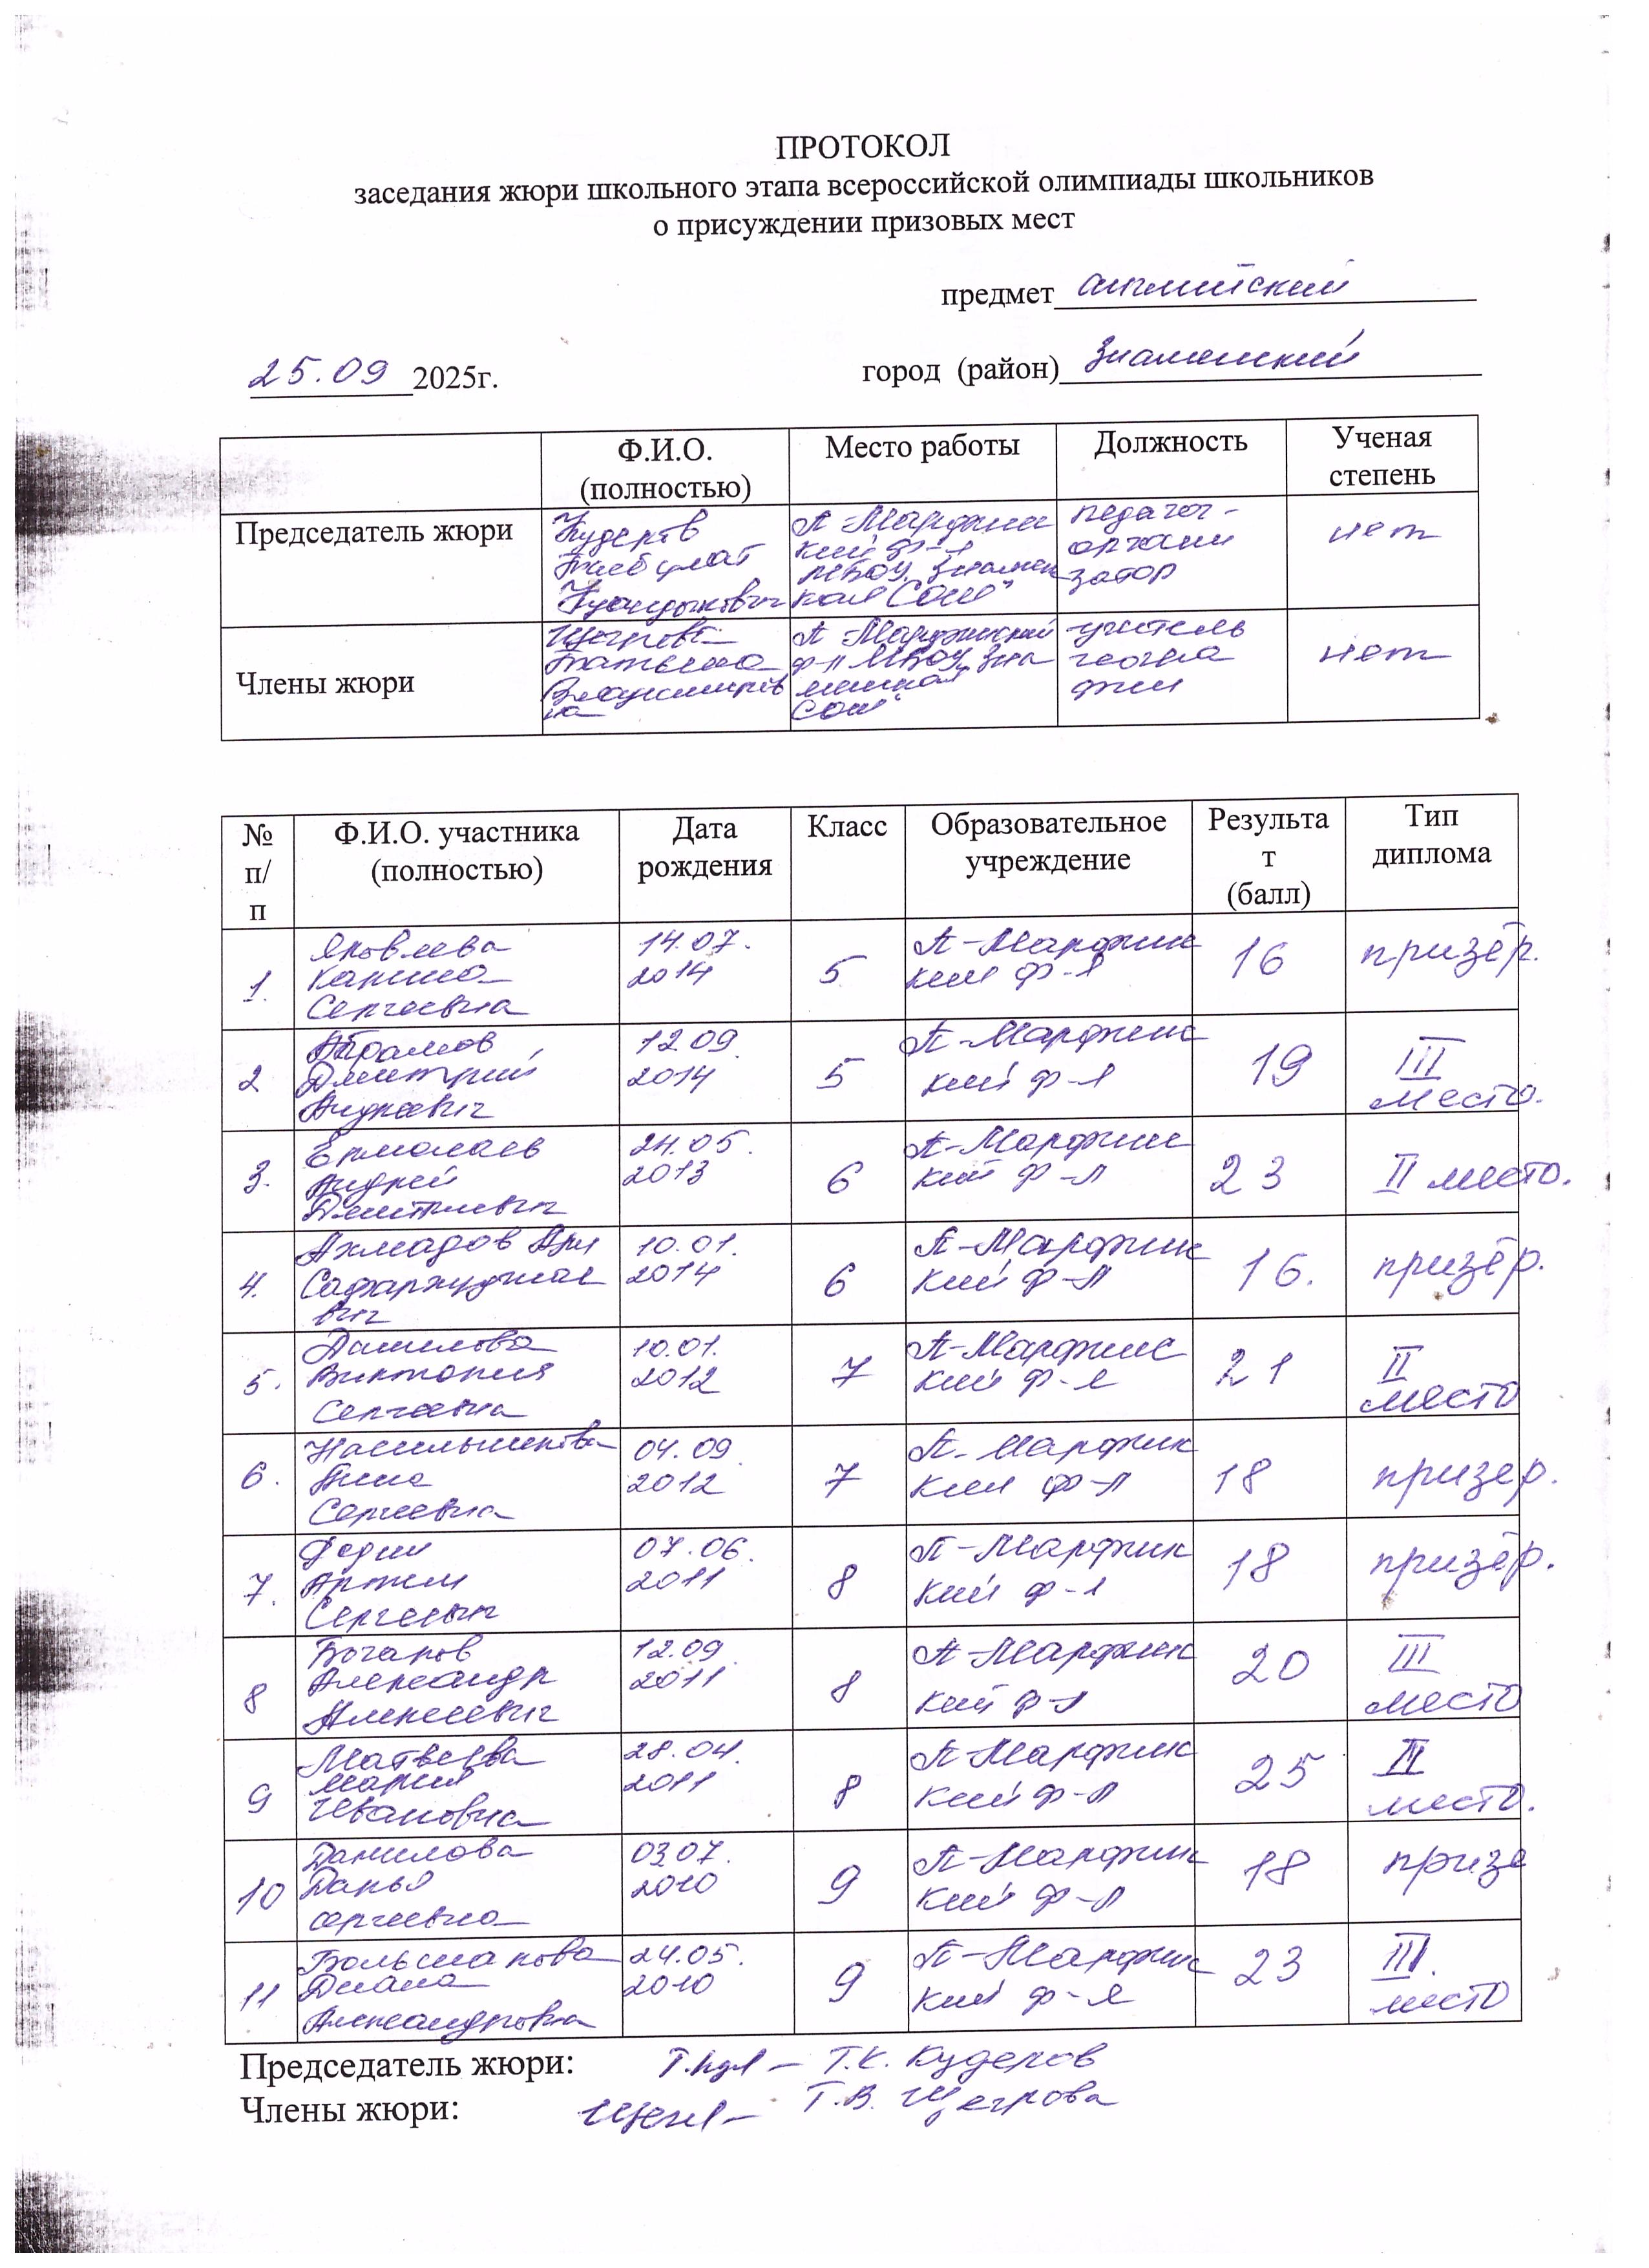 ПРОТОКОЛ
заседания жюри школьного этапа всероссийской олимпиады школьников
о присуждении призовых мест
предмет английский
25.09 2025г.
город (район) Знаменский
Ф.И.О. (полностью) Место работы Должность Ученая степень
Председатель жюри
Кудеров
К
П-Марфинс
кий ф-л
МБОУ "Знамен
кая СОШ"
педагог-
органи
затор
нет
Члены жюри
Щегрова
Татьяна
Владимиров
на
П-Марфинский
ф-л МБОУ "Зна
менская
СОШ"
учитель
геогра
фии
нет
№ п/п Ф.И.О. участника (полностью) Дата рождения Класс Образовательное учреждение Результат (балл) Тип диплома
1. Яковлева Карина Сергеевна 14.07. 2014 5 П-Марфинс кий ф-л 16 призёр.
2 Абрамов Дмитрий Андреевич 12.09. 2014 5 П-Марфинс кий ф-л 19 III место.
3. Ермолаев Андрей Дмитриевич 24.05. 2013 6 П-Марфинс кий ф-л 23 II место.
4. Ахмадов 10.01. 2014 6 П-Марфинс кий ф-л 16. призёр.
5. Данилова Виктория Сергеевна 10.01. 2012 7 П-Марфинс кий ф-л 21 II место
6. Сергеевна 04.09. 2012 7 П-Марфинс кий ф-л 18 призер.
7. Федин Артем Сергеевич 07.06. 2011 8 П-Марфинс кий ф-л 18 призёр.
8 Бочаров Александр Алексеевич 12.09. 2011 8 П-Марфинс кий ф-л 20 III место
9 Матвеева Мария Ивановна 28.04. 2011 8 П-Марфинс кий ф-л 25 II место.
10 Данилова Дарья Сергеевна 03.07. 2010 9 П-Марфинс кий ф-л 18 призе
11 Большакова Диана Александровна 24.05. 2010 9 П-Марфинс кий ф-л 23 III. место
Председатель жюри: Т.К. Кудеров
Члены жюри: Т.В. Щегрова